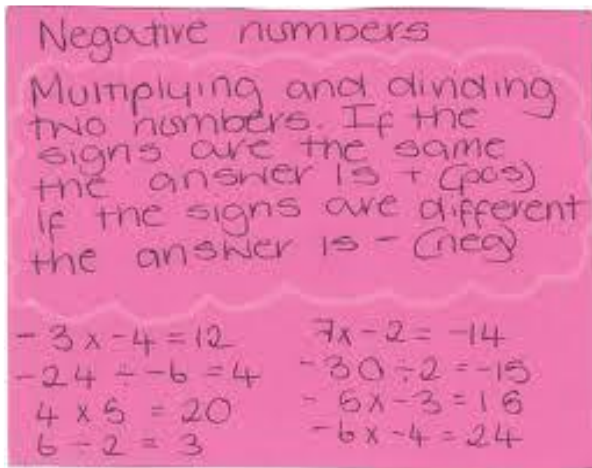 Negative numbers
Multiplying and dividing
two numbers. If the
signs are the same
the answer is + (pos)
if the signs are different
the answer is - (neg)
-3 x -4 = 12
-24 ÷ -6 = 4
4 x 5 = 20
6 ÷ 2 = 3
7x -2 = -14
-30 ÷ 2 = -15
-5x -3 = 15
-6x -4 = 24